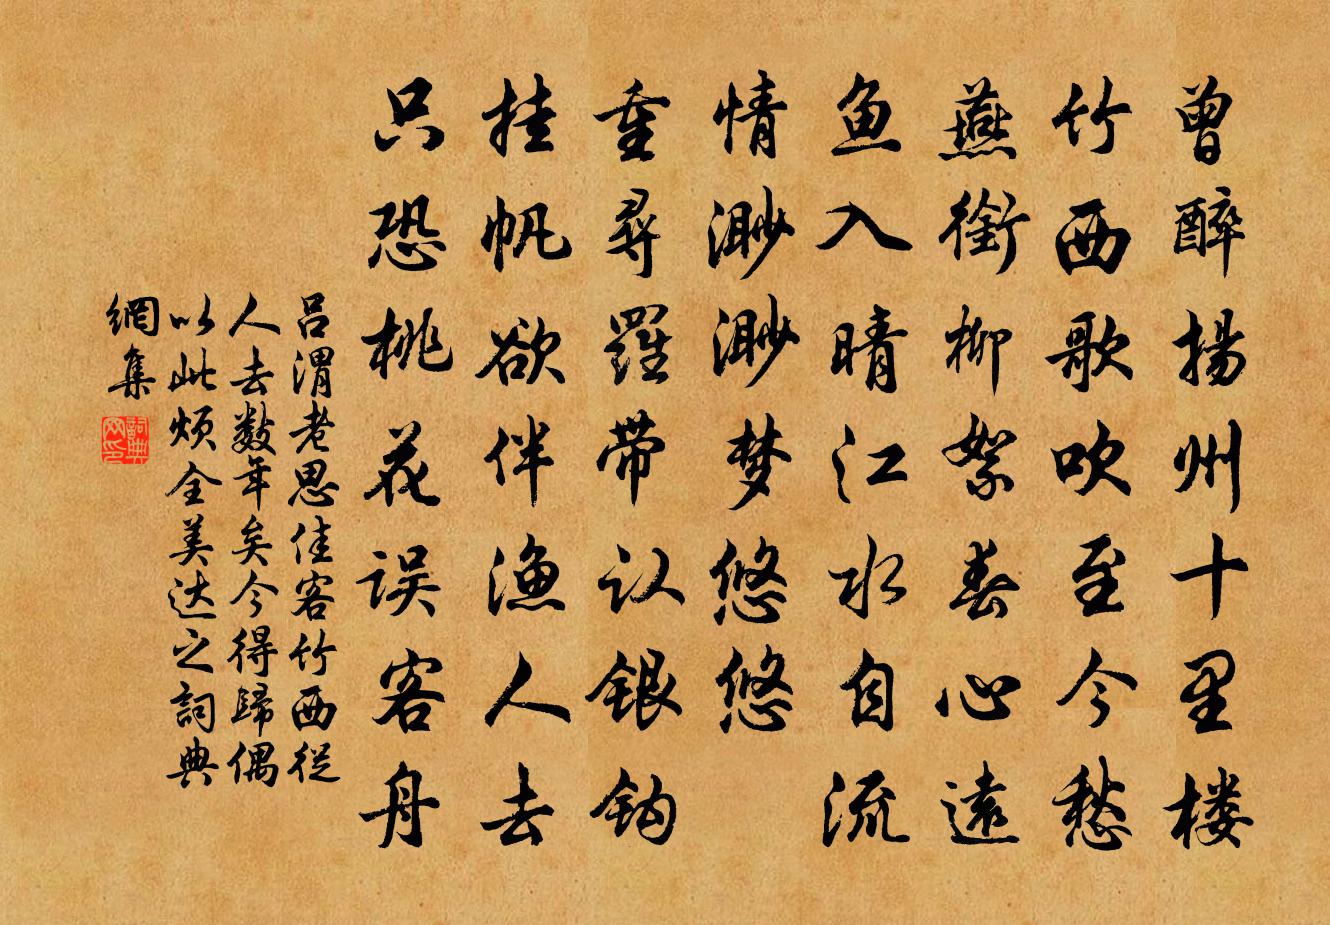 曾醉揚州十里楼
竹西歌吹至今愁
燕銜柳絮春心遠
鱼入晴江水自流
情渺渺梦悠悠
重尋羅带认银钩
挂帆欲伴漁人去
只恐桃花误客舟
吕渭老思佳客竹西従
人去数年矣今得歸偶
以此烦全美达之詞典
網集
詞典網印